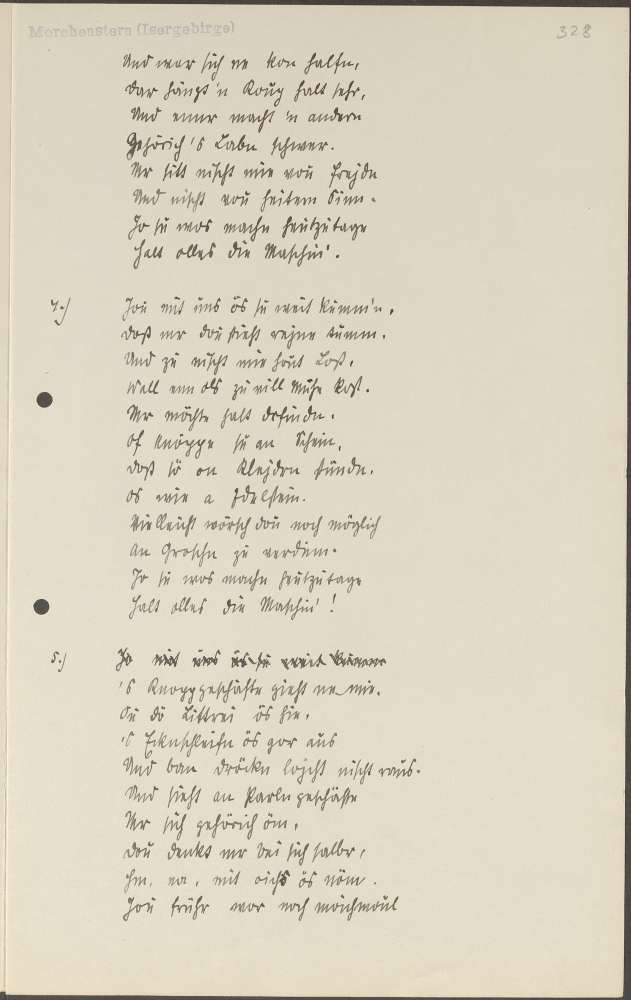 Morchenstern (Isergebirge)
328
Und wer sich ne kon halfn,
dar hängt 'n Koup halt sehr,
Und enner macht 'n andern
Gehörich 's Labn schwer.
Mr sitt nischt mie vou Frejdn
Und nischt vou heitem Sinn.
Jo su wos machn heutzutage
Halt olles die Maschin'.
4.)
Jou mit uns ös su weit kumm'n,
doß mr dou sieht rejne tumm.
Und zu nischt mie hout Lost,
Weil enn ols zu vill Mühe kost.
Mr möchte halt drfindn.
Of Knöppe su an Schein,
doß sö on Klejdrn fundn.
os wie a Edelstein.
Vielleicht wörsch dou noch möglich
An Groschn zu verdinn.
Jo su wos machn heutzutage
Halt olles die Maschin' !
5.)
Jo mit uns ös su weit kumm
's Knoppgeschäfte gieht ne mie.
Ou dö Littrei ös hie.
's Ecknschleifn ös gor aus
Und ban dröckn lojcht nischt raus.
Und sieht an Parlngeschäfte
Mr sich gehörich öm,
dou denkt mr bei sich salbr,
Hm, na, mit eich ös nöm.
Jou frühr wor noch möichmoul